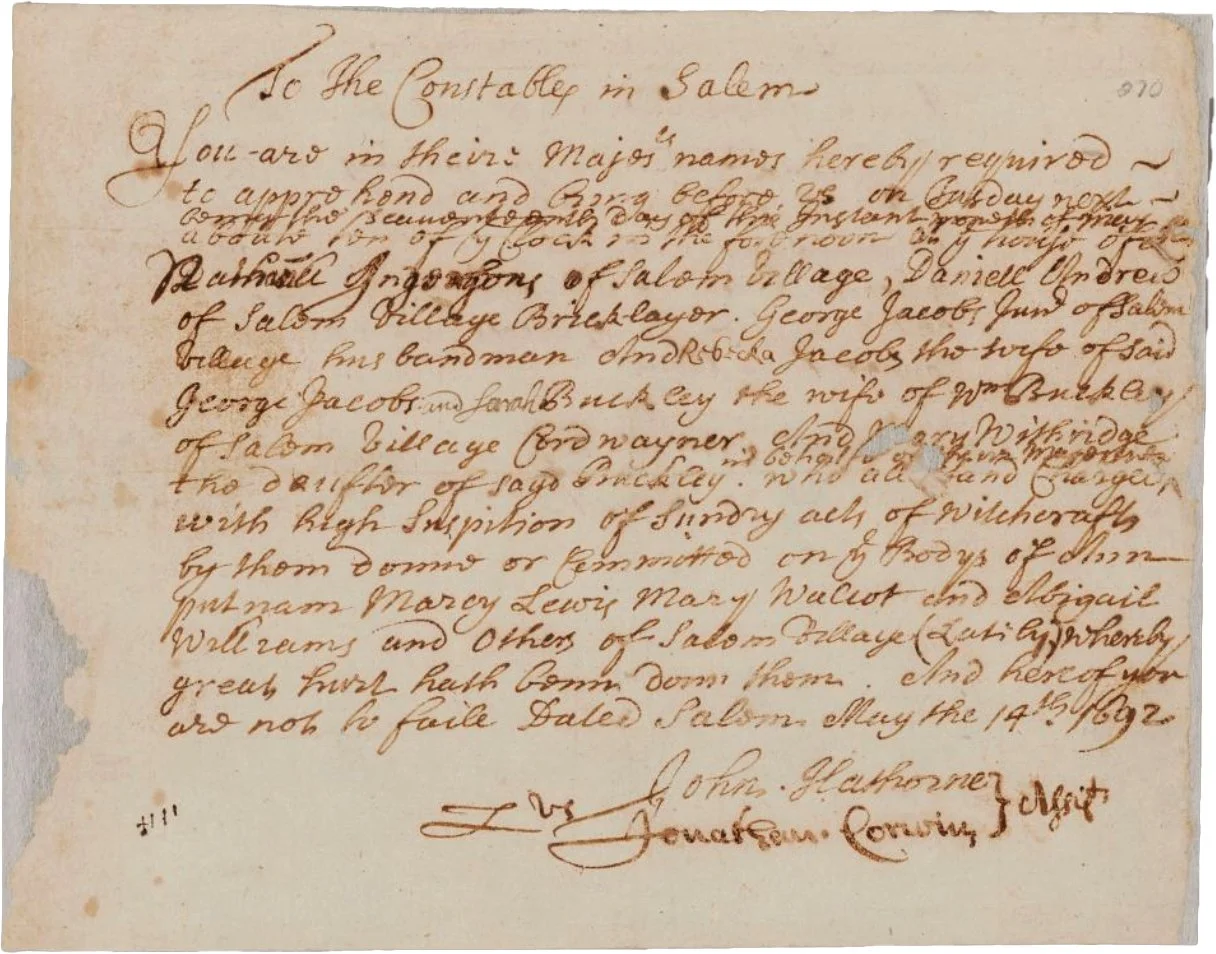 To The Constables in Salem
970
You are in theire Majes^ts names hereby required
to apprehend and bring before us on Tuesday next
being the seaventeenth day of this Instant moneth of may
aboute ten of y^e Clock in the forenoon at y^e house of
Nathaniell Ingersons of Salem Village, Daniell Andrew
of Salem Village Bricklayer. George Jacobs Jun^r of Salem
Village husbandman And Rebecka Jacobs the wife of said
George Jacobs and Sarah Buckley the wife of W^m Buckley
of Salem Village Cordwayner, And Mary Withridge
in behalfe of theire Majesties
the daufter of sayd Buckley. who all stand Charged
with high Suspition of Sundry acts of Witchcrafts
by them donne or Committed on y^e Bodys of Ann
putnam Marcy Lewis Mary Walcot and Abigail
Williams and Others of Salem Village (Lately) whereby
great hurt hath benn donn them. And hereof you
are not to faile Dated Salem May the 14^th 1692
John. Hathorne
P us Jonathan. Corwin } Assis^ts